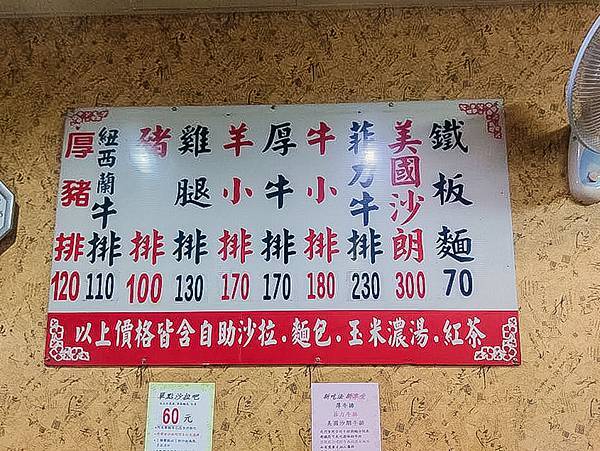 鐵板麵 70
美國沙朗 300
菲力牛排 230
牛小排 180
厚牛排 170
羊小排 170
雞腿排 130
豬排 100
紐西蘭牛排 110
厚豬排 120
以上價格皆含自助沙拉.麵包.玉米濃湯.紅茶
單點沙拉吧
60元
新吃法
薄牛排
菲力牛排
美國沙朗牛排